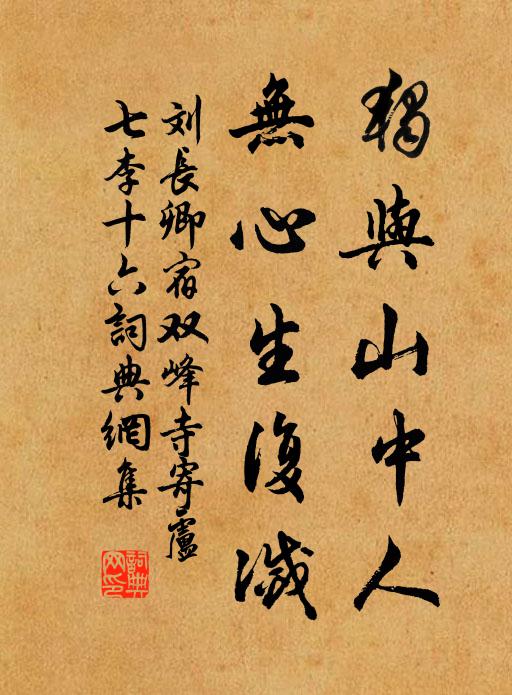 獨與山中人
無心生復滅
刘長卿宿双峰寺寄盧
七李十六詞典網集
詞典網印